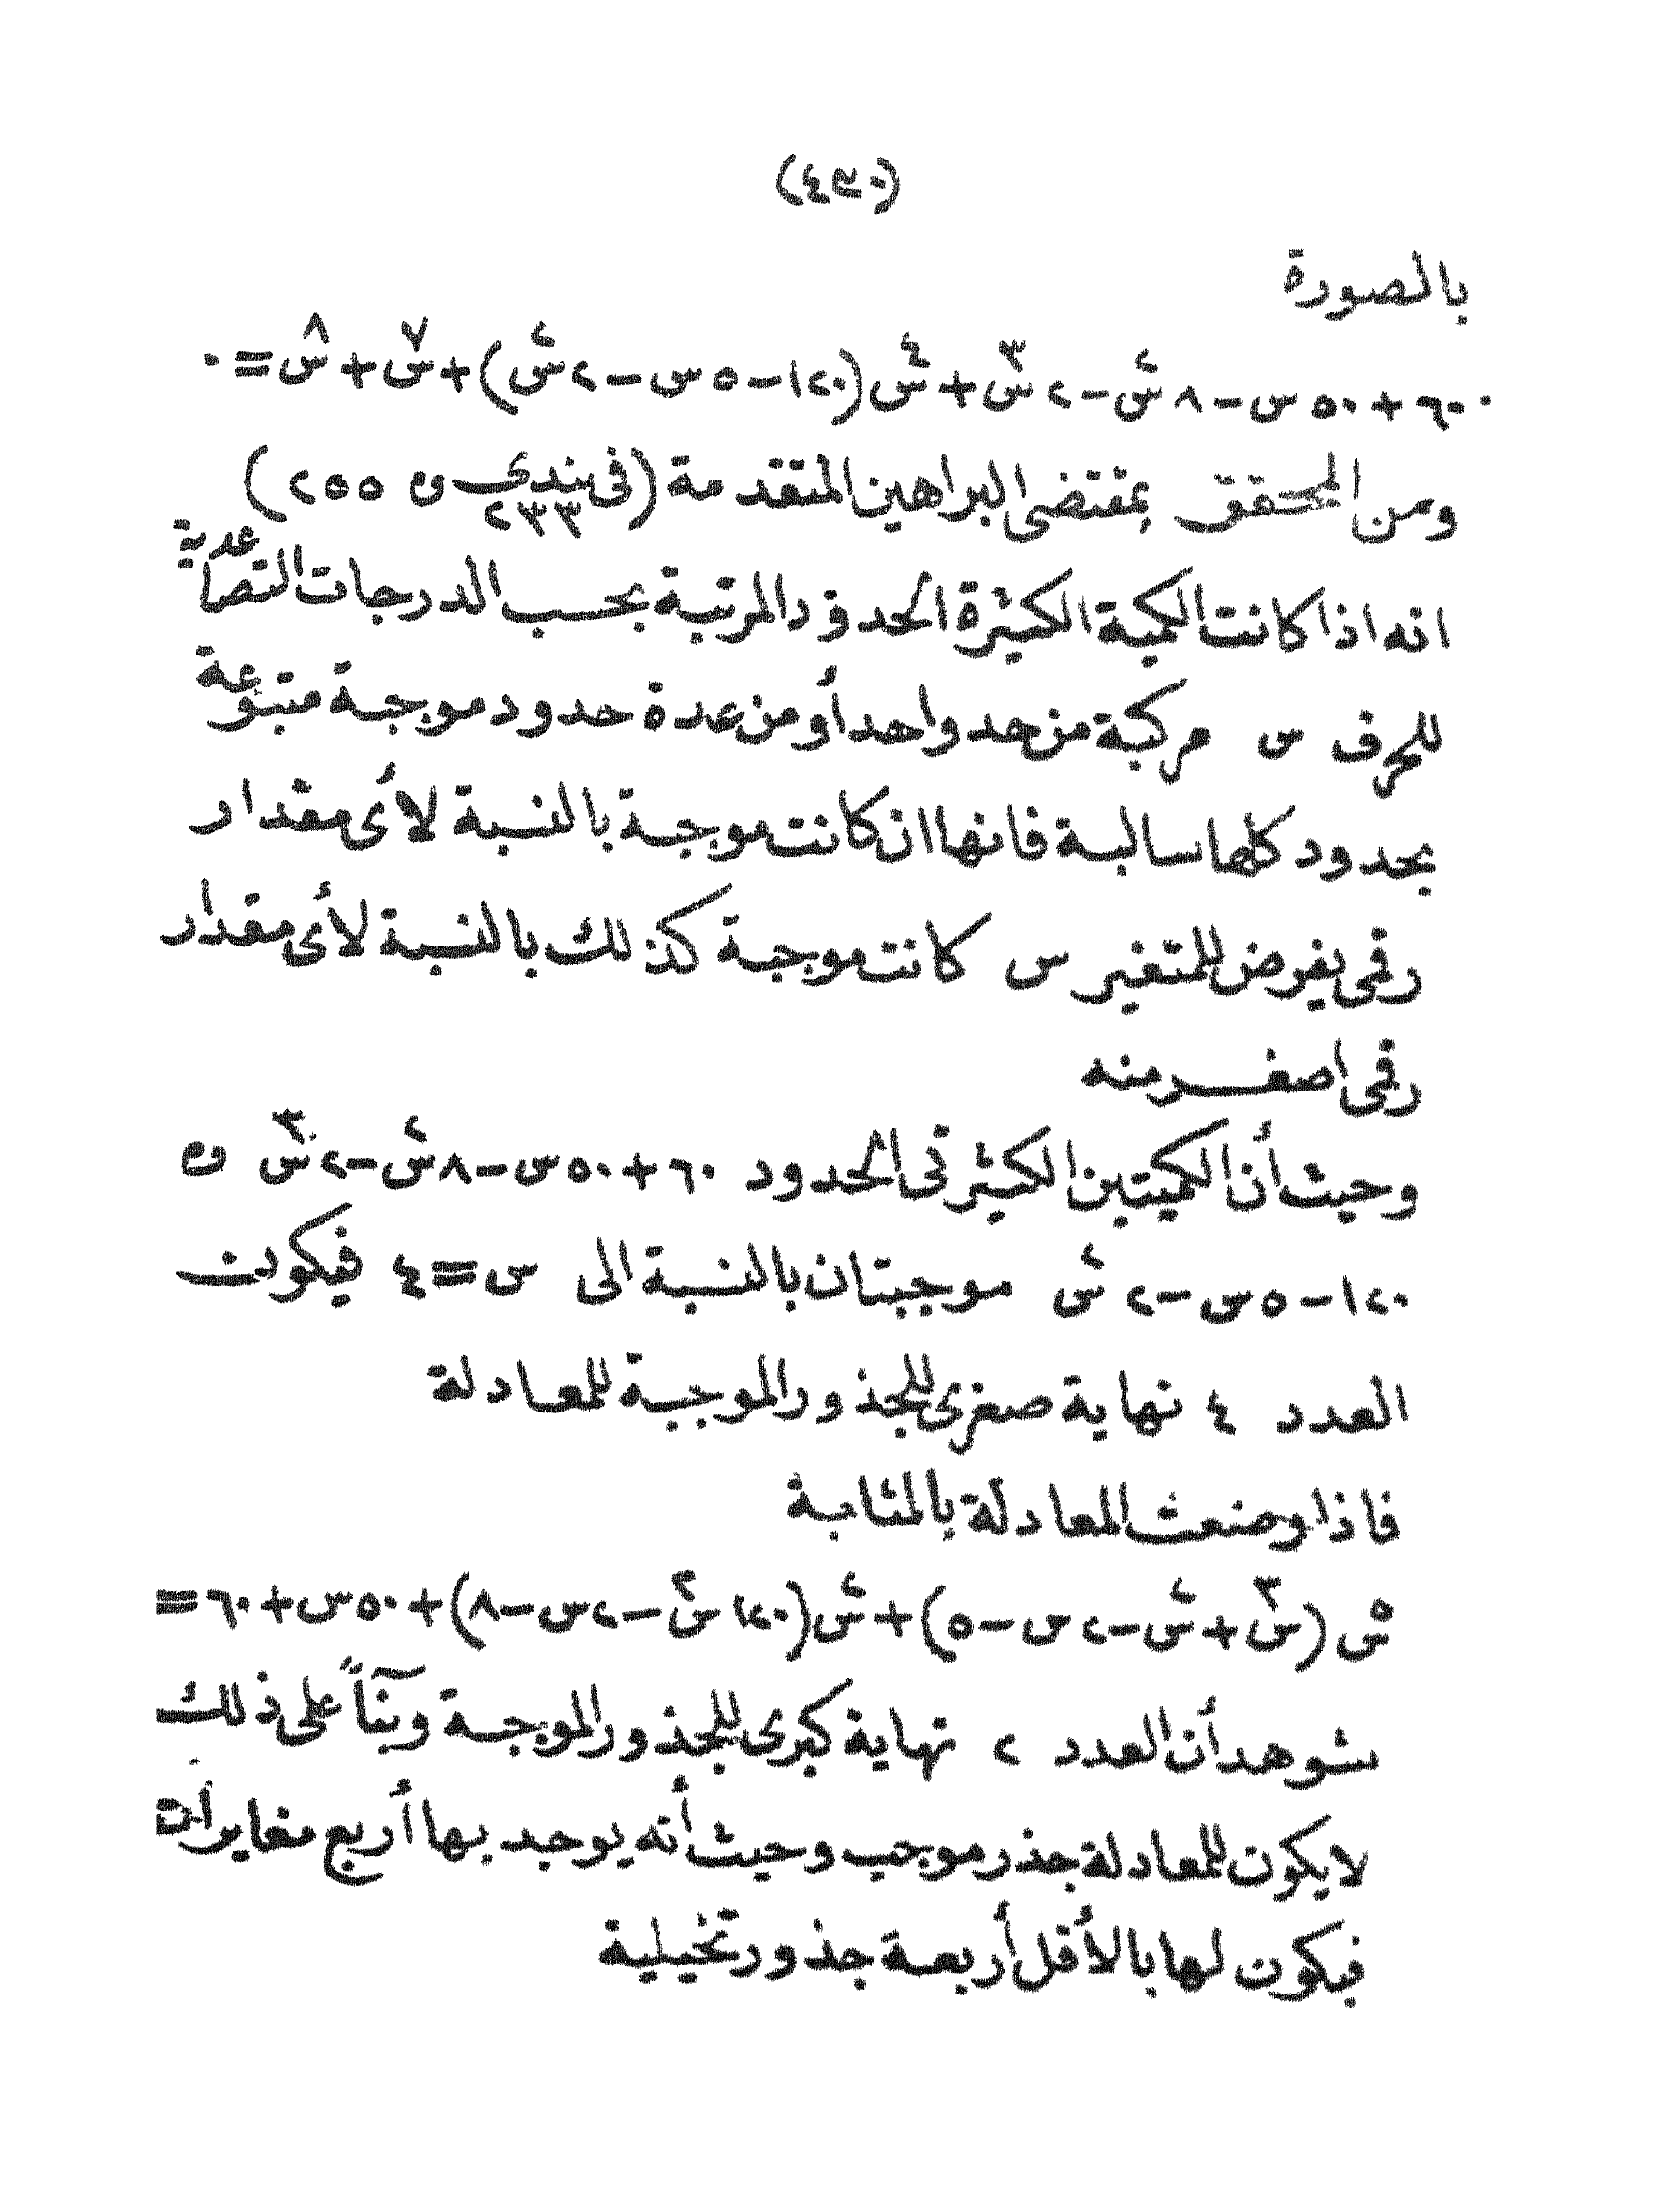 (٤٩٠)
بالصورة
٦٠٠ + ٥٠س − ٨س٢ − ٢س٣ + س٤(١٢٠ − ٥س − ٢س٢) + س٧ + س٨ = ٠
ومن المحقق بمقتضى البراهين المتقدمة (فى بندى ٢٣٣ و ٢٥٥)
انه اذا كانت الكمية الكثيرة الحدود المرتبة بحسب الدرجات التصاعدية
للحرف س مركبة من حد واحد أو من عدة حدود موجبة متبوعة
بحدود كلها سالبة فانها ان كانت موجبة بالنسبة لأى مقدار
رقمى يفرض للمتغير س كانت موجبة كذلك بالنسبة لأى مقدار
رقمى اصغر منه
وحيث أن الكميتين الكثيرتى الحدود ٦٠٠ + ٥٠س − ٨س٢ − ٢س٣ و
١٢٠ − ٥س − ٢س٢ موجبتان بالنسبة الى س = ٤ فيكون
العدد ٤ نهاية صغرى للجذور الموجبة للمعادلة
فاذا وضعت المعادلة بالمثابة
س٥ (س٣ + س٢ − ٢س − ٥) + س٢(١٢٠س٢ − ٢س − ٨) + ٥٠س + ٦٠٠ =
شوهد أن العدد ٢ نهاية كبرى للجذور الموجبة وبنآً على ذلك
لا يكون للمعادلة جذر موجب وحيث أنه يوجد بها أربع مغايرات
فيكون لها بالأقل أربعة جذور تخيلية